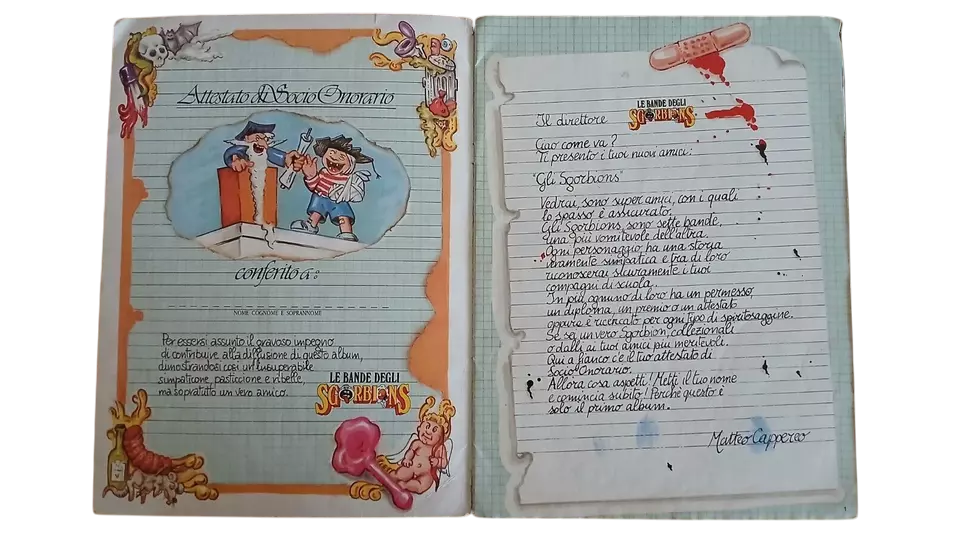 Attestato di Socio Onorario
conferito a:
NOME COGNOME E SOPRANNOME
Per essersi assunto il gravoso impegno
di contribuire alla diffusione di questo album,
dimostrandosi così un'insuperabile
simpaticone, pasticcione e ribelle,
ma sopratutto un vero amico.
LE BANDE DEGLI
SGORBIONS
LE BANDE DEGLI
SGORBIONS
Il direttore
Ciao come va?
Ti presento i tuoi nuovi amici:
"Gli Sgorbions"
Vedrai, sono super amici, con i quali
lo spasso è assicurato.
Gli Sgorbions, sono sette bande,
una più vomitevole dell'altra.
Ogni personaggio, ha una storia
veramente simpatica e tra di loro
riconoscerai sicuramente i tuoi
compagni di scuola.
In più ognuno di loro ha un permesso,
un diploma, un premio o un attestato
oppure è ricercato per ogni tipo di spiritosaggine.
Se sei un vero Sgorbion, collezionali
o dalli ai tuoi amici più meritevoli.
Qui a fianco c'è il tuo attestato di
Socio Onorario.
Allora cosa aspetti! Metti il tuo nome
e comincia subito! Perché questo è
solo il primo album.
Matteo Capperco
1